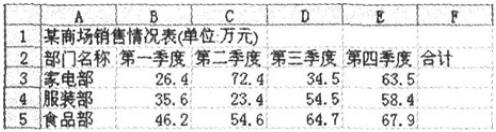 A B C D E F
1 某商场销售情况表(单位万元)
2 部门名称 第一季度 第二季度 第三季度 第四季度 合计
3 家电部 26.4 72.4 34.5 63.5
4 服装部 35.6 23.4 54.5 58.4
5 食品部 46.2 54.6 64.7 67.9